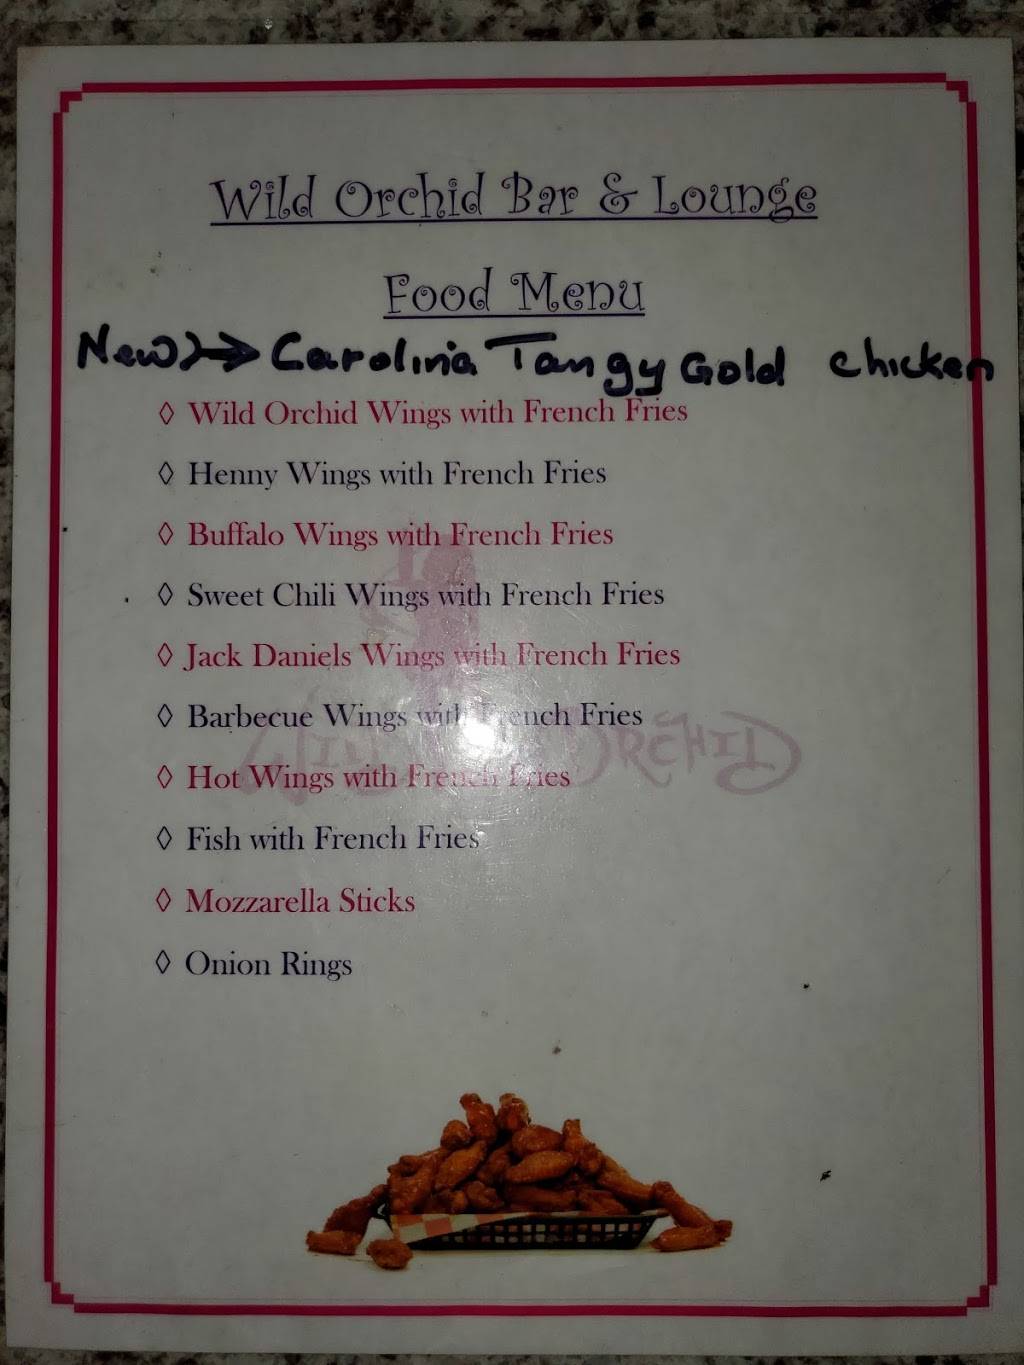 Wild Orchid Bar & Lounge
Food Menu
New >→ Carolina Tangy Gold chicken
◊ Wild Orchid Wings with French Fries
◊ Henny Wings with French Fries
◊ Buffalo Wings with French Fries
◊ Sweet Chili Wings with French Fries
◊ Jack Daniels Wings with French Fries
◊ Barbecue Wings with French Fries
WILD ORCHID
◊ Hot Wings with French Fries
◊ Fish with French Fries
◊ Mozzarella Sticks
◊ Onion Rings